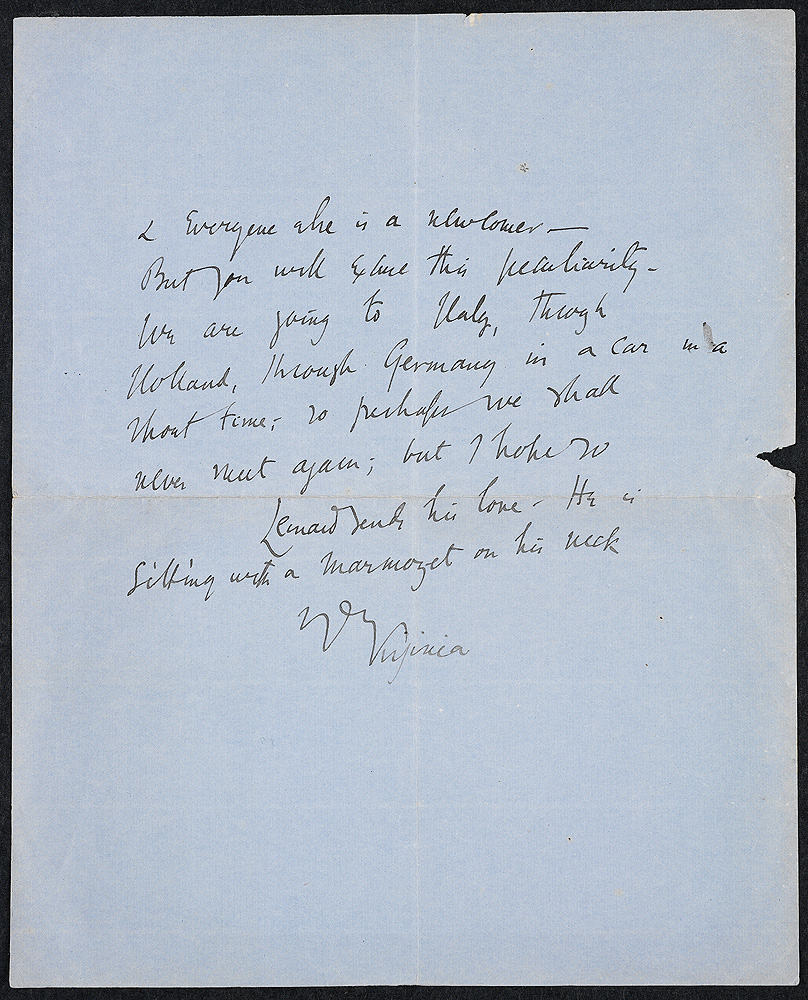 & Everyone else is a newcomer —
But you will excuse this peculiarity -
We are going to Italy, through
Holland, through Germany in a car in a
short time; so perhaps we shall
never meet again; but I hope so
Leonard sends his love - He is
Sitting with a marmozet on his neck
Virginia